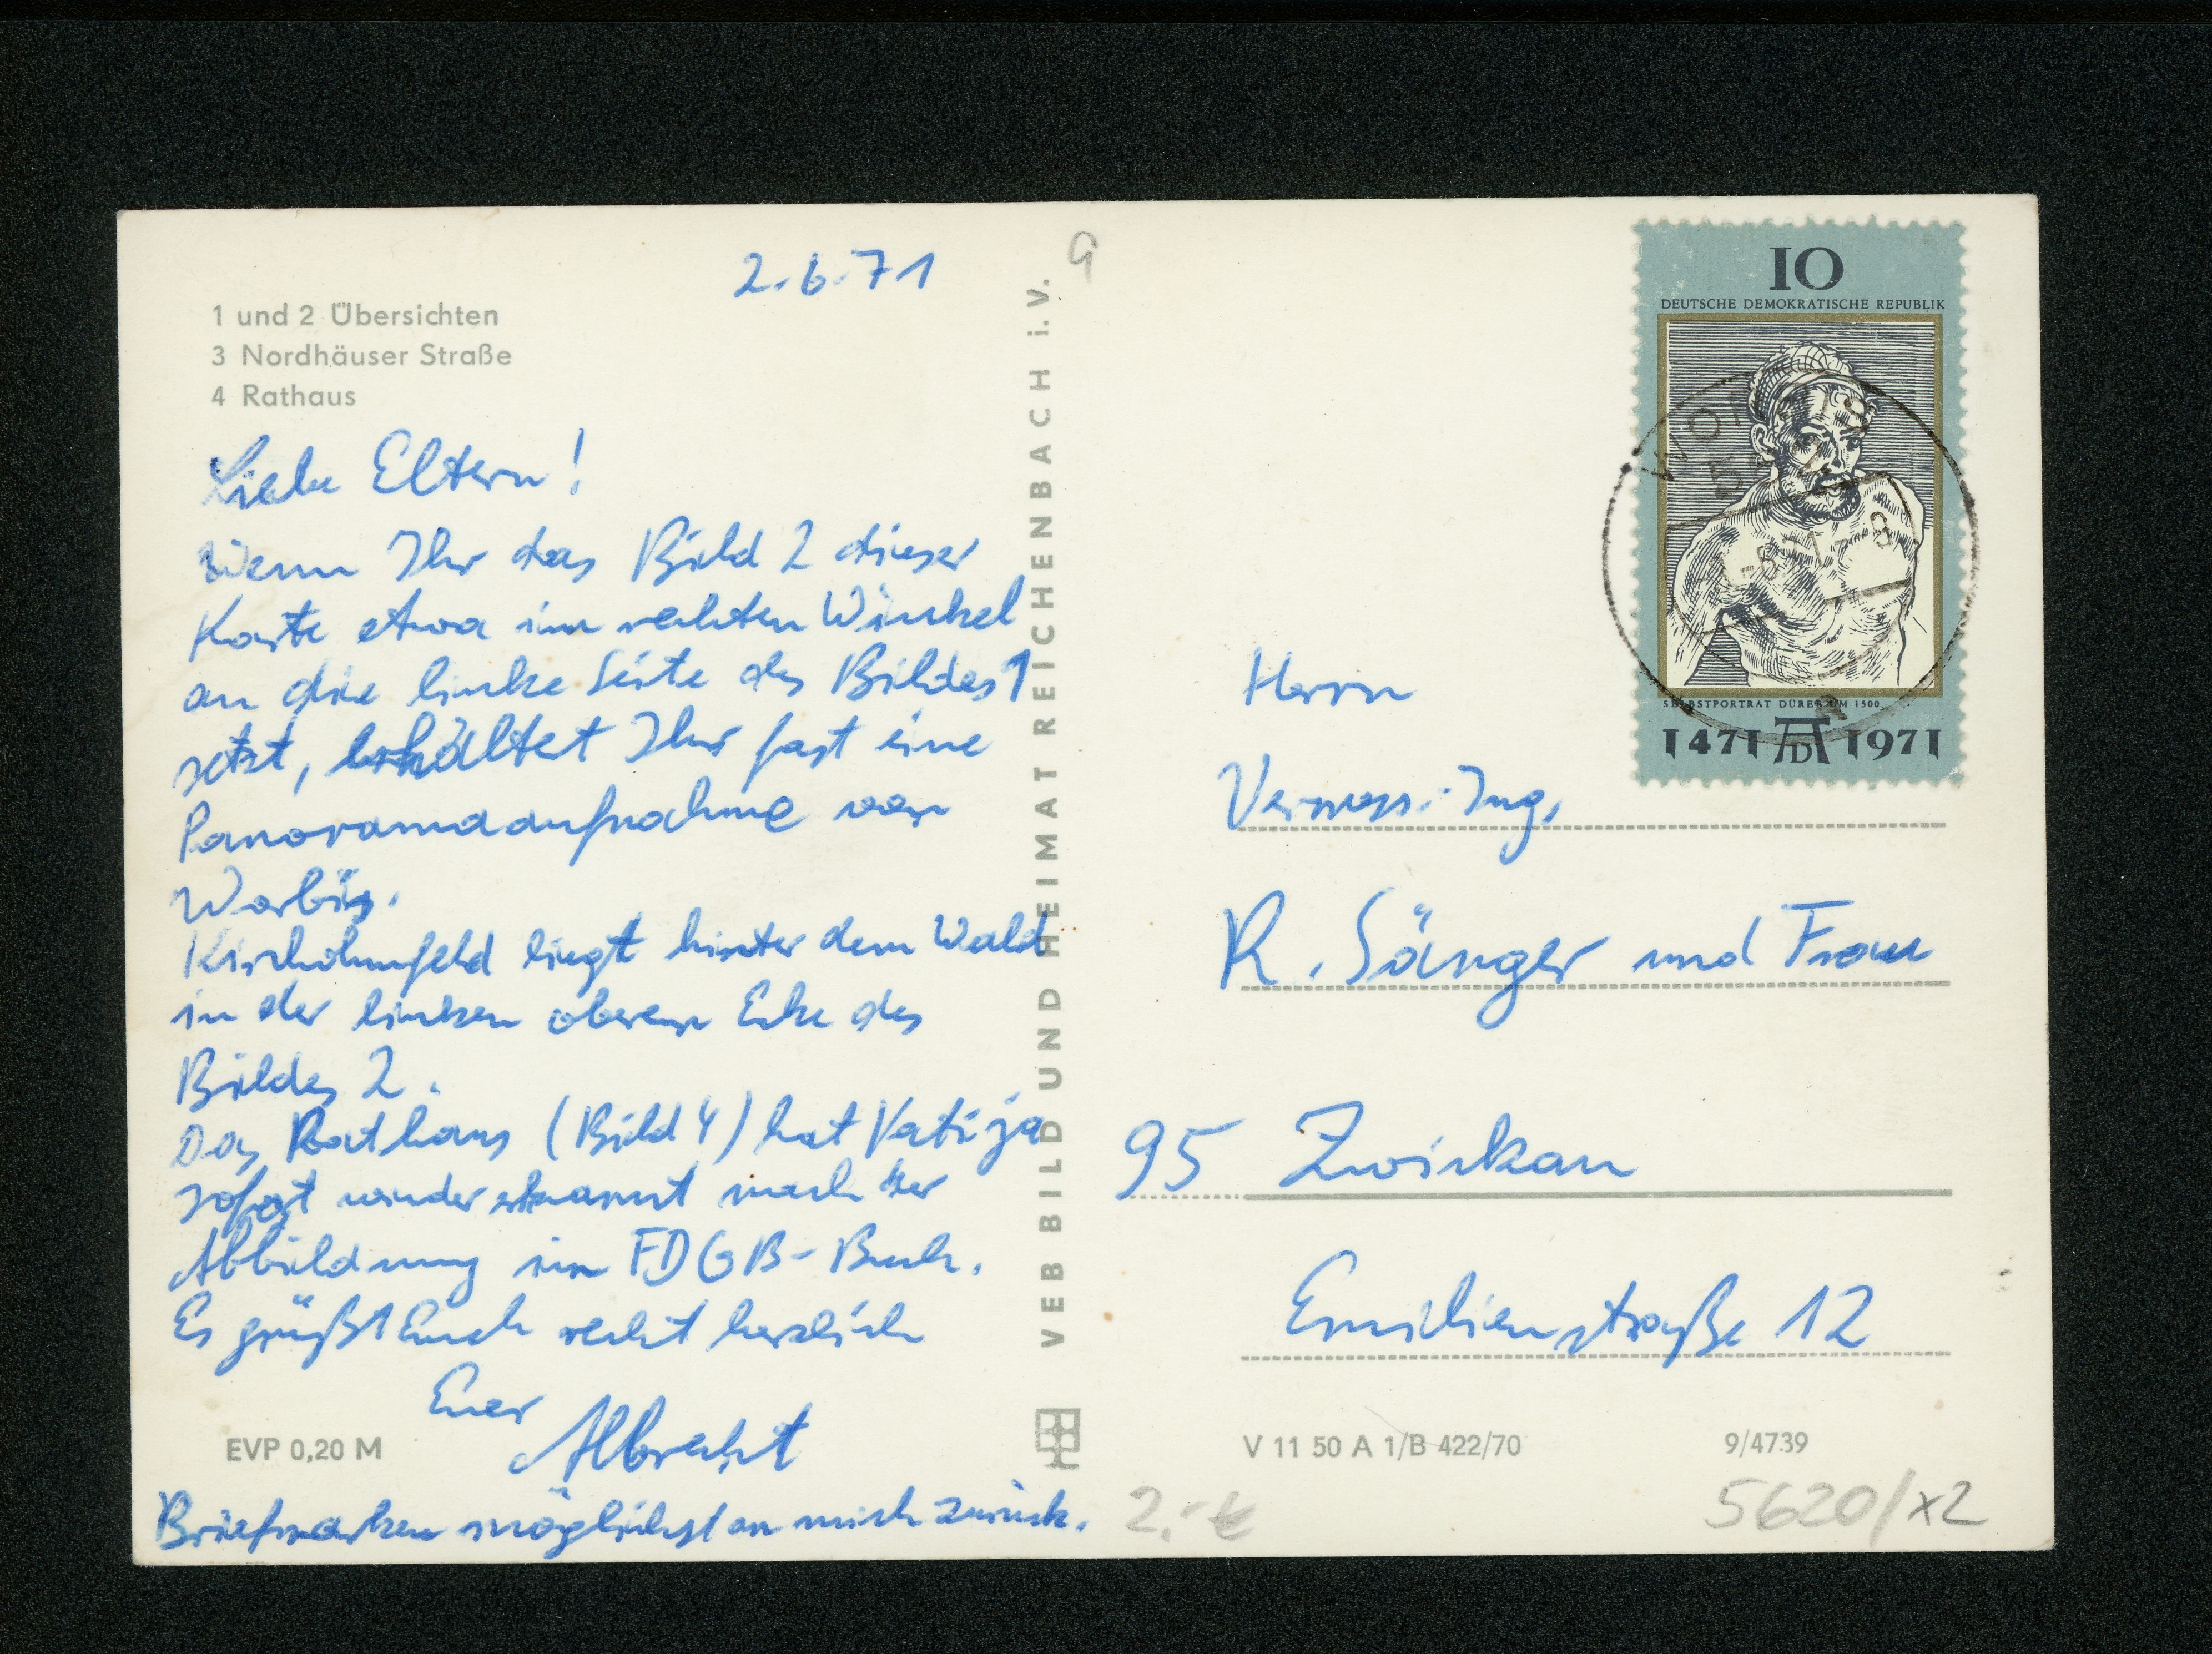 2.6.71
1 und 2 Übersichten
3 Nordhäuser Straße
4 Rathaus
Liebe Eltern!
Wenn Ihr das Bild 2 dieser
Karte etwa im rechten Winkel
an die linke Seite des Bildes 1
setzt, erhaltet Ihr fast eine
Panoramaaufnahme von
Worbis.
Kirchohmfeld liegt hinter dem Wald
in der linken oberen Ecke des
Bildes 2.
Das Rathaus (Bild 4) hat Vati ja
sofort wiedererkannt nach der
Abbildung im FDGB-Buch.
Es grüßt Euch recht herzlich
Euer
Albrecht
EVP 0,20 M
Briefmarken möglichst an mich zurück.
VEB BILD UND HEIMAT REICHENBACH i.V.
9
10
DEUTSCHE DEMOKRATISCHE REPUBLIK
SELBSTPORTRÄT DÜRER UM 1500
1471 AD 1971
Herrn
Vermess.-Ing.
R. Sänger und Frau
95 Zwickau
Emilienstraße 12
V 11 50 A 1/B 422/70
9/4739
2,- €
5620/x2